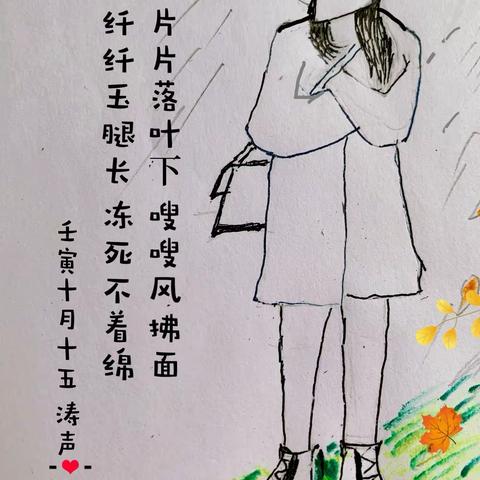 片片落叶下 嗖嗖风拂面
纤纤玉腿长 冻死不着绵
壬寅十月十五 涛声